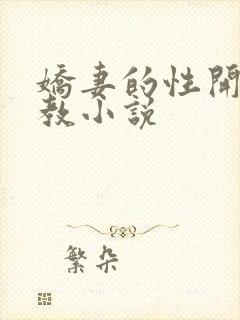 嬌妻的性開
教小說
繁朵